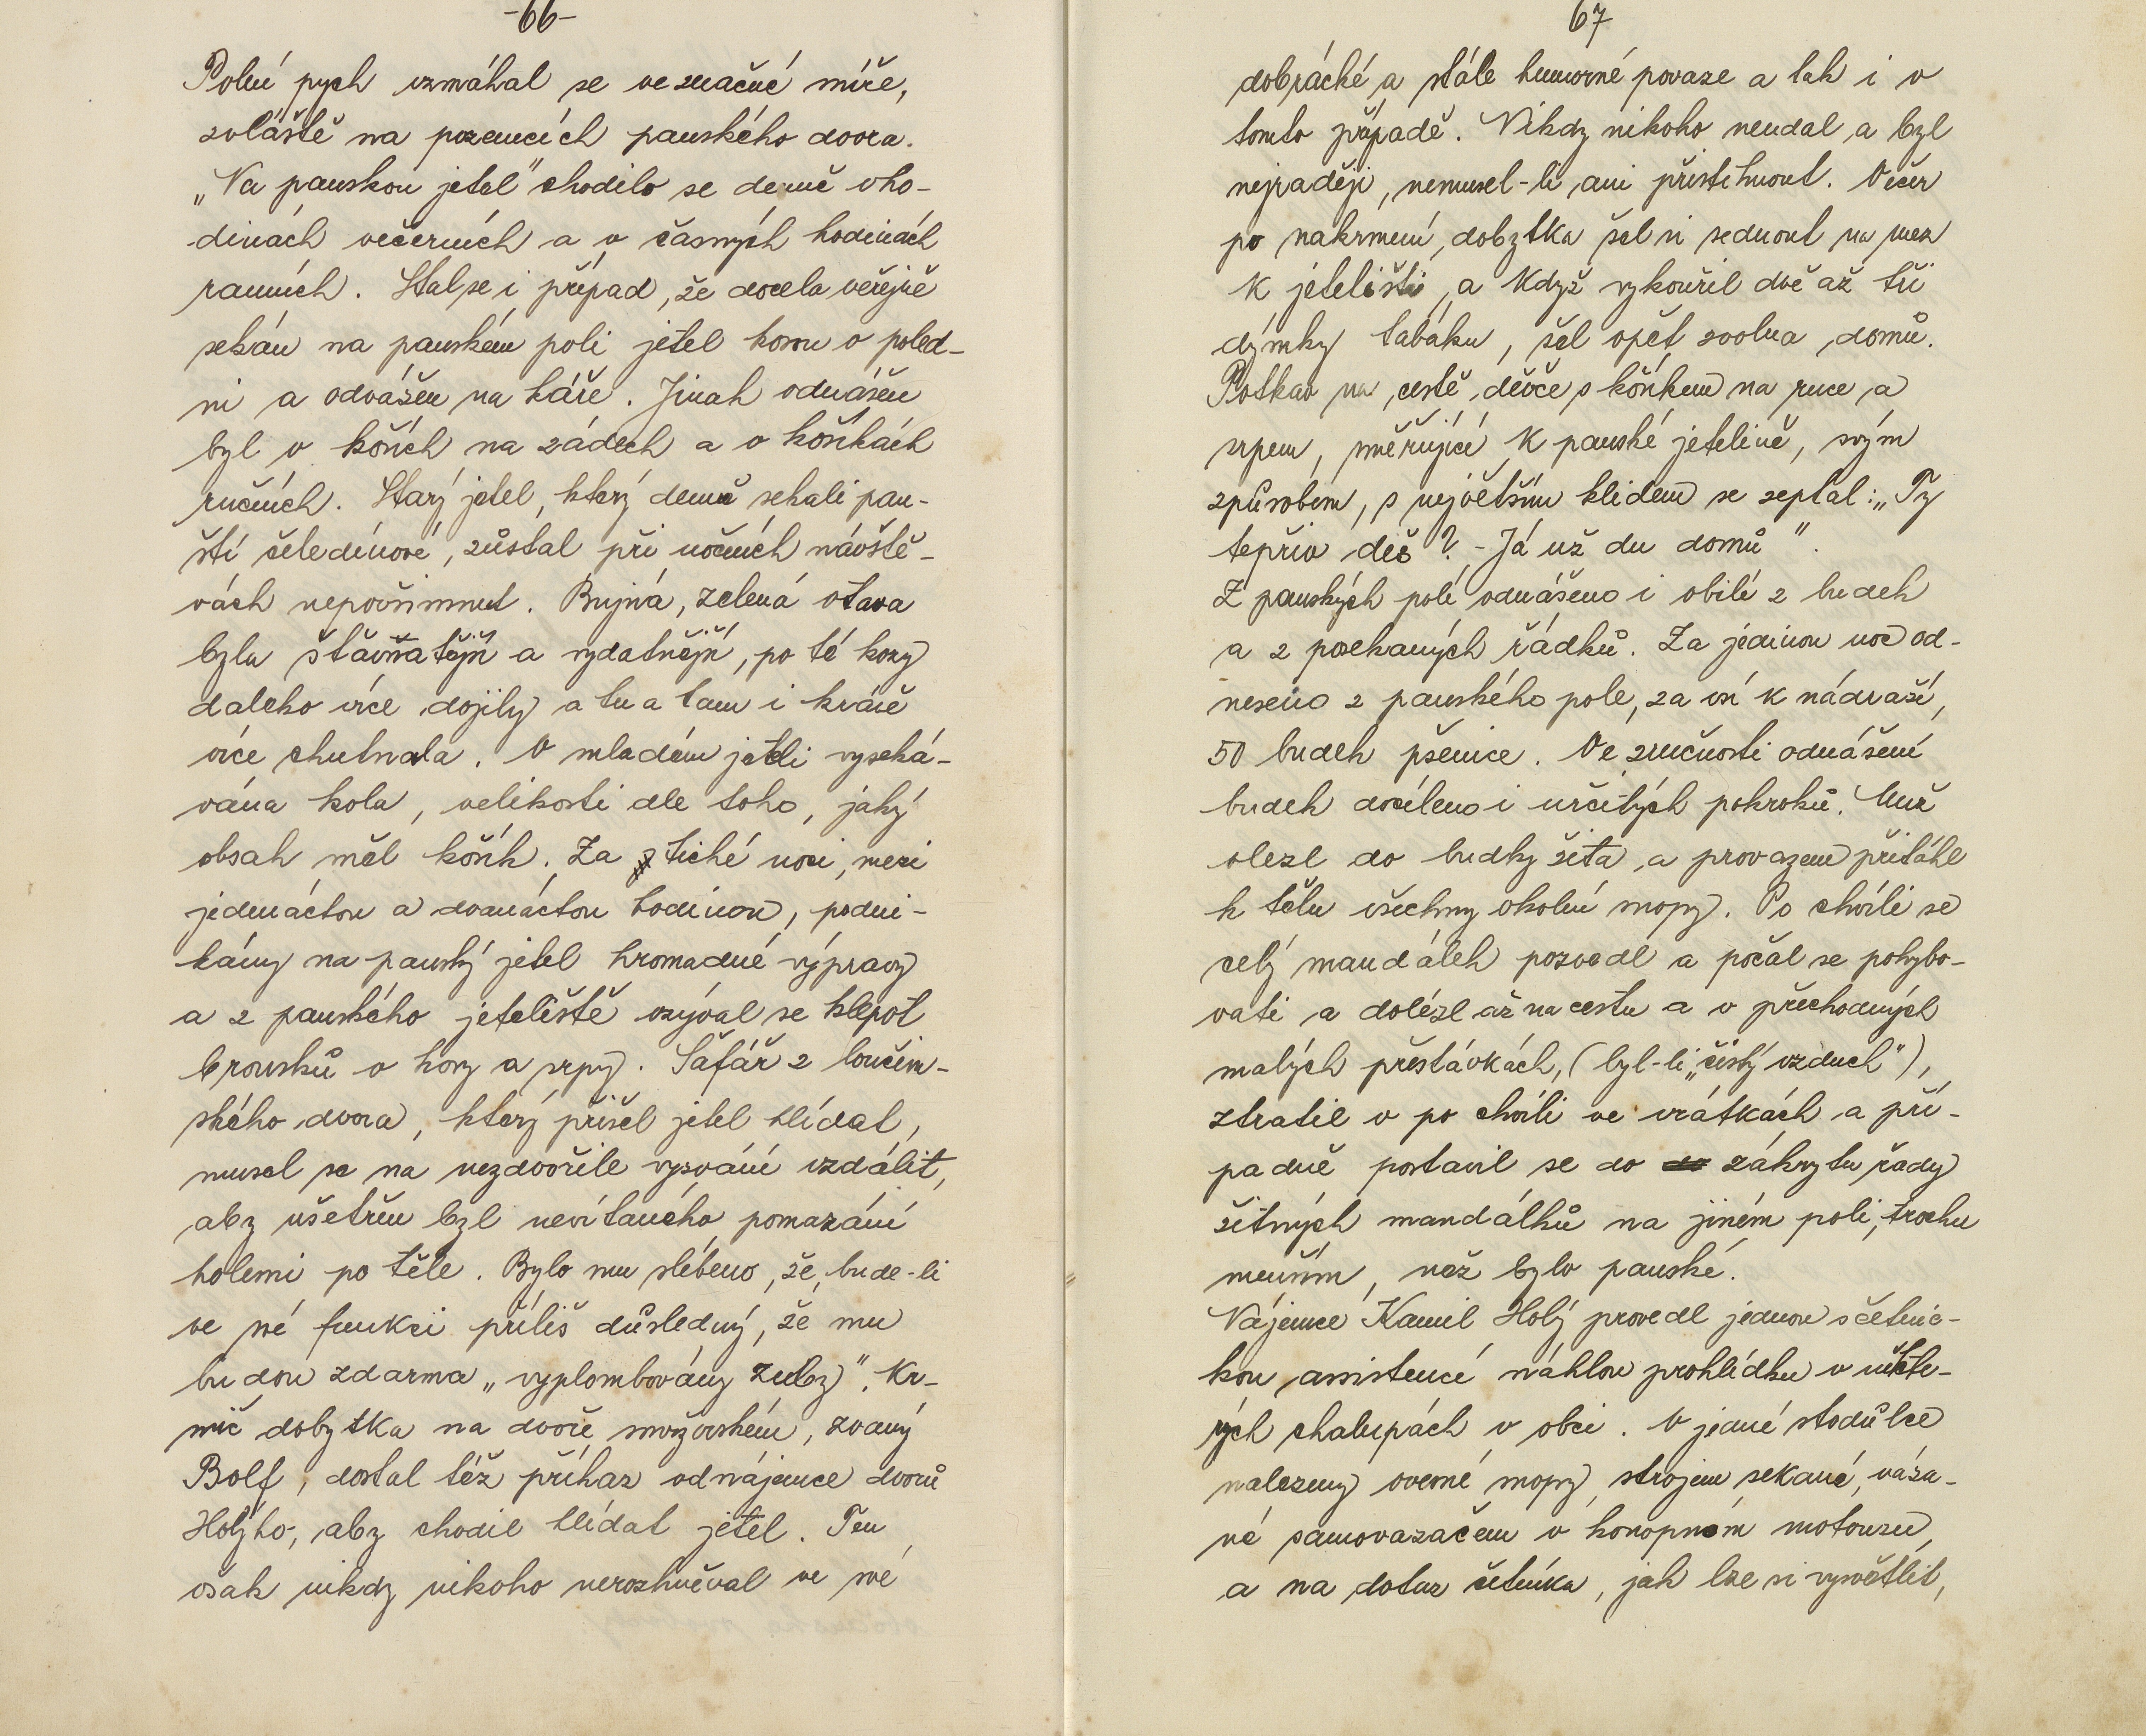 -66-
Polní pych vzmáhal se ve značné míře,
zvláště na pozemcích panského dvora.
„Na panskou jetel" chodilo se denně vho-
dinách večerních a v časných hodinách
ranních. Stal se i případ, že docela veřejně
sekán na panském poli jetel kosou v poled-
ni a odvážen na káře. Jinak odnášen
byl v koších na zádech a v košíkách
ručních. Starý jetel, který denně sekali pan-
ští čeledínové, zůstal při nočních návště-
vách nepovšimnut. Bujná, zelená otava
byla šťavňatější a vydatnější, po té kozy
daleko více dojily a tu a tam i krávě
více chutnala. V mladém jeteli vyseká-
vána kola, velikosti dle toho, jaký
obsah měl košík. Za tiché noci, mezi
jedenáctou a dvanáctou hodinou, podni-
kány na panský jetel hromadné výpravy
a z panského jeteliště ozýval se klepot
brousků o kosy a srpy. Šafář z loučim-
ského dvora, který přišel jetel hlídat,
musel se na nezdvořile vyzvání vzdálit,
aby ušetřen byl nevítaného pomazání
holemi po těle. Bylo mu slíbeno, že, bude-li
ve své funkci příliš důsledný, že mu
budou zdarma „vyplombovány zuby". Kr-
mič dobytka na dvoře smržovském, zvaný
Bolf, dostal též příkaz od nájemce dvorů
Holýho, aby chodil hlídat jetel. Ten
však nikdy nikoho nerozhněval ve své
67
dobrácké a stále humorné povaze a tak i v
tomto případě. Nikdy nikoho neudal a byl
nejraději, nemusel-li ani přistihnout. Večer
po nakrmení dobytka šel si sednout na mez
k jetelišti, a když vykouřil dvě až tři
dýmky tabáku, šel opět zvolna domů.
Potkav na cestě děvče s košíkem na ruce a
srpem, směřující k panské jetelině, svým
způsobem, s největším klidem se zeptal: „Ty
tepřiv deš? - Já už du domů".
Z panských polí odnášeno i obilí z budek
a z posekaných řádků. Za jedinou noc od-
neseno z panského pole, za vsí k nádraží,
50 budek pšenice. Ve zručnosti odnášení
budek docíleno i určitých pokroků. Muž
vlezl do budky žita a provazem přitáhl
k tělu všechny okolní snopy. Po chvíli se
celý mandálek pozvedl a počal se pohybo-
vati a dolézl až na cestu a v přechodných
malých přestávkách, (byl-li „čistý vzduch"),
ztratil v po chvíli ve vrátkách a pří-
padně postavil se do do zákrytu řady
žitných mandálků na jiném poli, trochu
menším, než bylo panské.
Nájemce Kamil Holý provedl jednou s četnic-
kou assistencí náhlou prohlídku v někte-
rých chalupách v obci. V jedné stodůlce
nalezeny ovesné snopy strojem sekané, váza-
né samovazačem v konopném motouzu,
a na dotaz četníka, jak lze si vysvětlit,